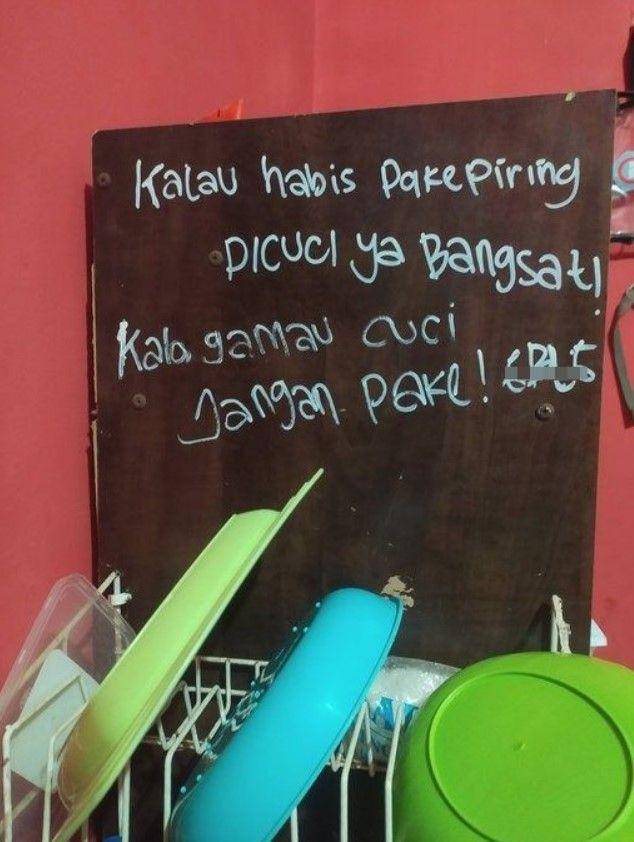 Kalau habis pake piring
DICUCI ya Bangsat!
Kalo gamau cuci
Jangan pake!